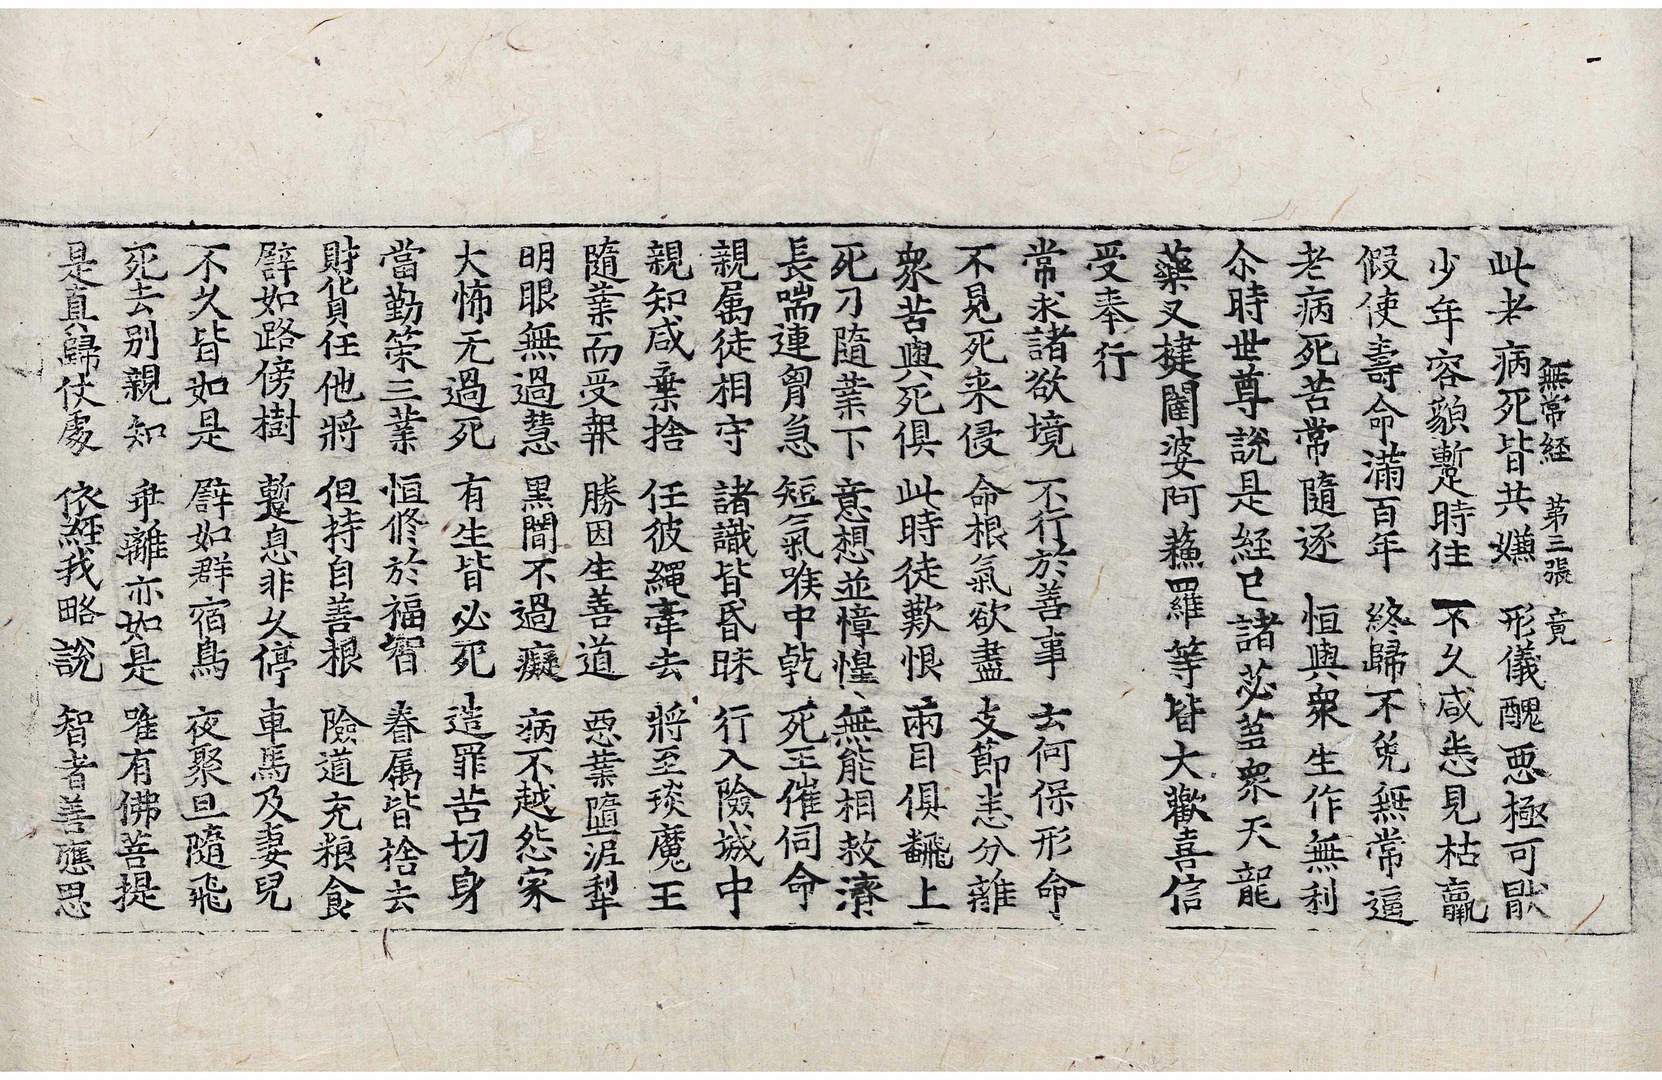 無常経 第三張 竟
此老病死皆共嫌 形儀醜惡極可猒
少年容貌蹔時住 不久咸悉見枯羸
假使壽命滿百年 終歸不免無常逼
老病死苦常隨逐 恒與衆生作無利
尒時世尊說是経已諸苾蒭衆天龍
藥叉揵闥婆阿蘓羅等皆大歡喜信
受奉行
常求諸欲境 不行於善事 云何保形命
不見死来侵 命根氣欲盡 支節悉分離
衆苦與死俱 此時徒歎恨 兩目俱飜上
死刀隨業下 意想並慞惶 無能相救濟
長喘連胷急 短氣喉中乾 死王催伺命
親属徒相守 諸識皆昏昧 行入險城中
親知咸棄捨 任彼繩牽去 將至琰魔王
隨業而受報 勝因生善道 惡業墮泥犁
明眼無過慧 黑闇不過癡 病不越怨家
大怖无過死 有生皆必死 造罪苦切身
當勤策三業 恒修於福智 眷属皆捨去
財貨任他將 但持自善根 險道充粮食
譬如路傍樹 蹔息非久停 車馬及妻兒
不久皆如是 譬如群宿鳥 夜聚旦隨飛
死去別親知 乖離亦如是 唯有佛菩提
是真歸仗處 依経我略說 智者善應思